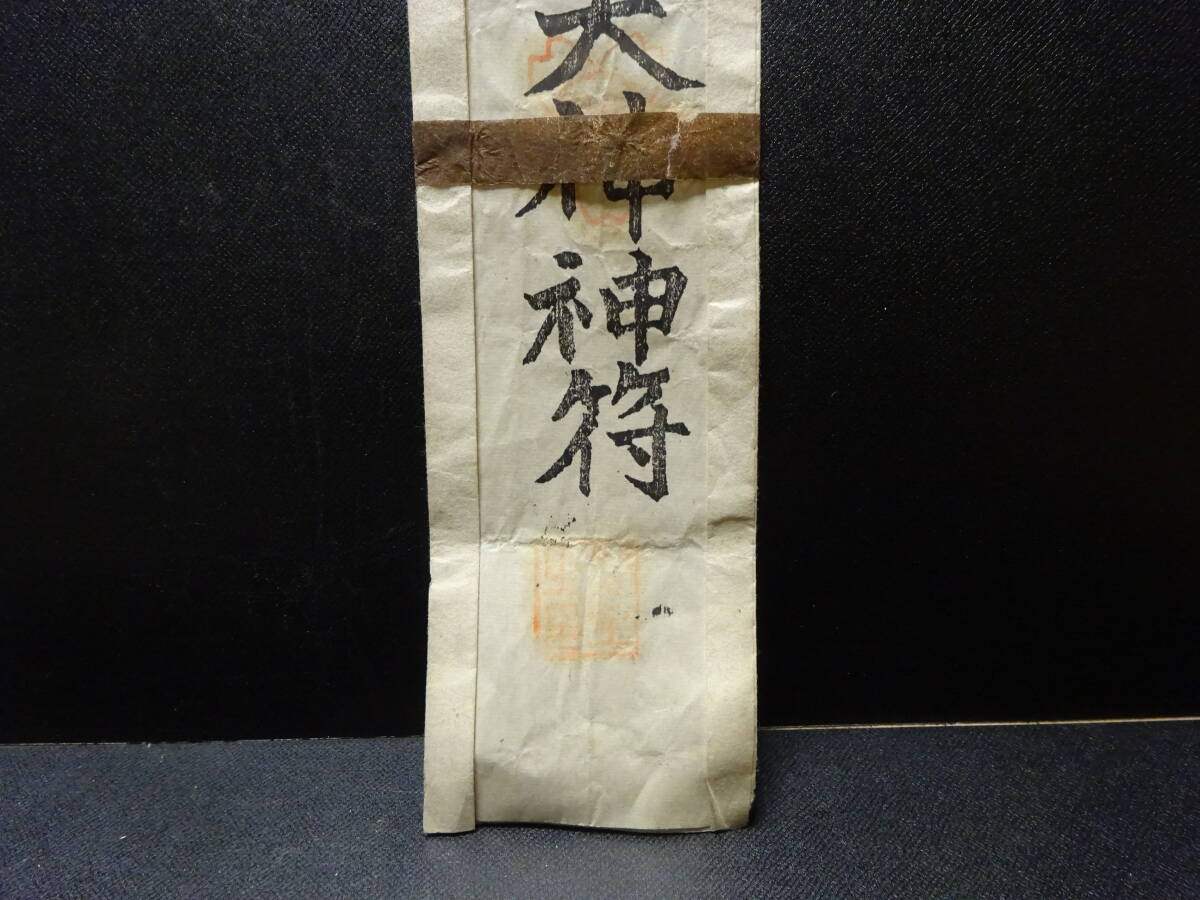 大神神符